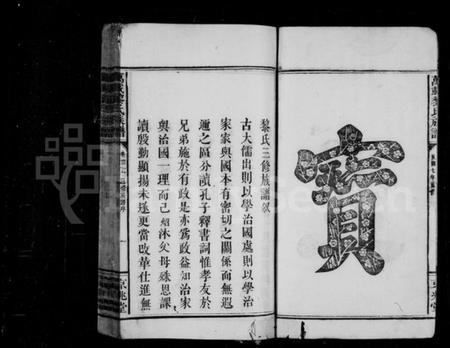 寶
黎氏三修族譜敘
古大儒出則以學治國處則以學治
家家與國本有密切之關係而無遐
邇之區分讀孔子釋書詞惟孝友於
兄弟施於有政是亦為政益知治家
與治國一理而已紹沐父母殊恩課
讀殷勤顯揚未遂更當改革仕進無
京兆堂